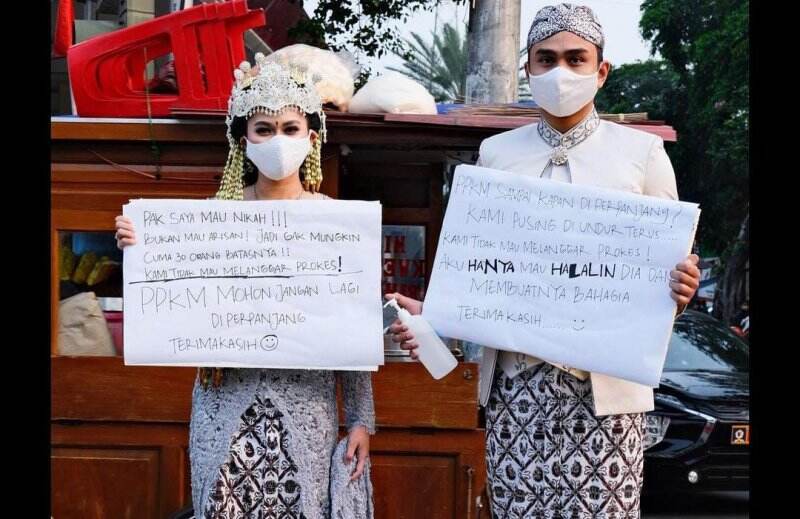 PAK SAYA MAU NIKAH !!!
BUKAN MAU ARISAN ! JADI GAK MUNGKIN
CUMA 30 ORANG BATASNYA !!
KAMI TIDAK MAU MELANGGAR PROKES !
PPKM MOHON JANGAN LAGI
DI PERPANJANG
TERIMAKASIH ☺
PPKM SAMPAI KAPAN DI PERPANJANG ?
KAMI PUSING DI UNDUR TERUS.....
KAMI TIDAK MAU MELANGGAR PROKES !
AKU HANYA MAU HALALIN DIA DAN
MEMBUATNYA BAHAGIA
TERIMAKASIH....... ☺